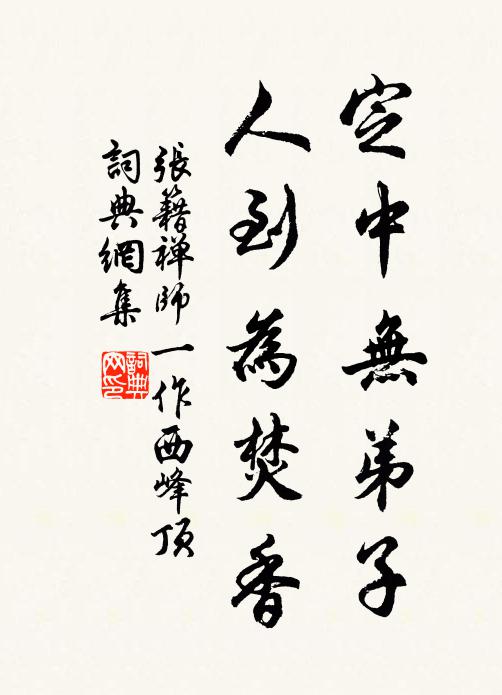 定中無弟子
人到為焚香
張籍禅師一作西峰頂
詞典網集
詞典
网印